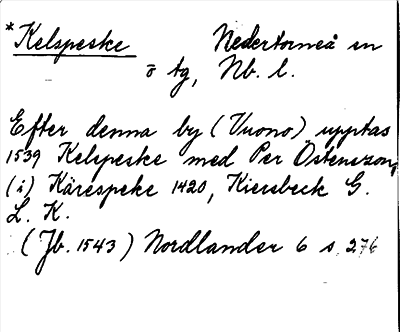 *Kelspeske Nedertorneå sn
ö tg, Nb. l.
Efter denna by (Vuono) upptas
1539 Kelspeske med Per Östensson,
(i) Kärespeke 1420, Kiersbeck G.
L. K.
(Jb. 1543) Nordlander 6 s. 276